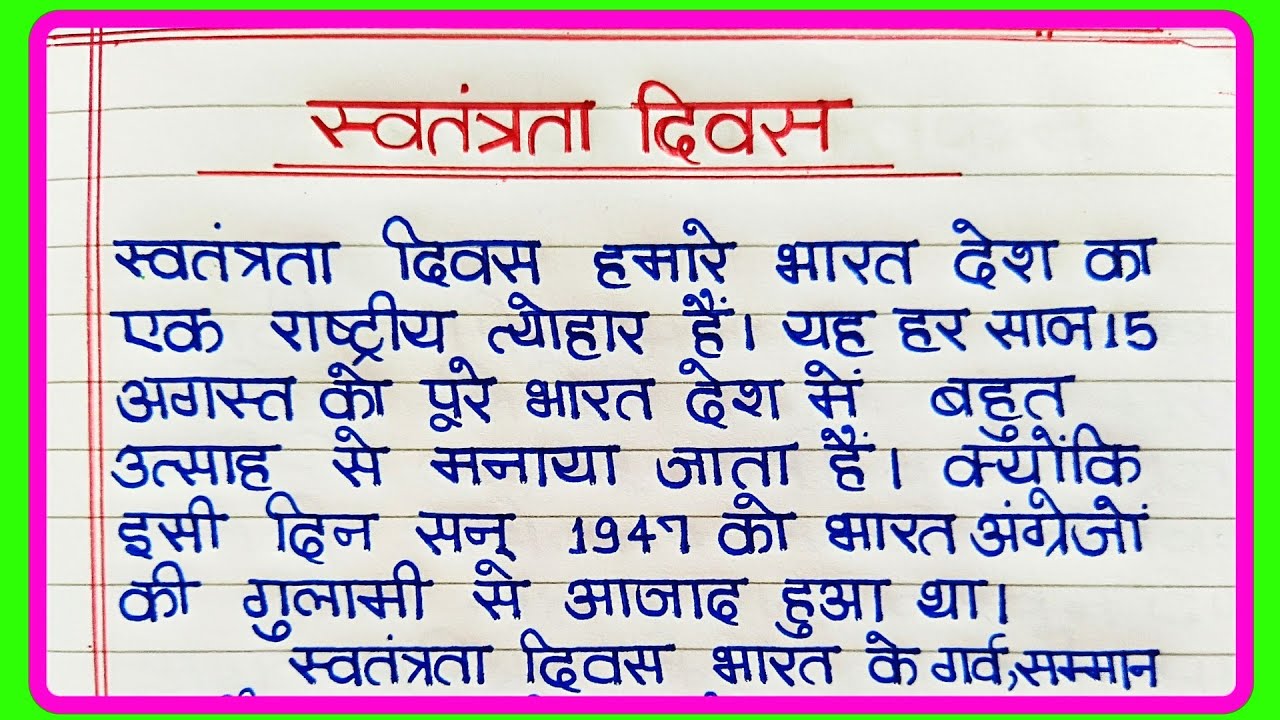 स्वतंत्रता दिवस
स्वतंत्रता दिवस हमारे भारत देश का
एक राष्ट्रीय त्योहार हैं। यह हर साल 15
अगस्त को पूरे भारत देश में बहुत
उत्साह से मनाया जाता हैं। क्योंकि
इसी दिन सन् 1947 को भारत अंग्रेजों
की गुलामी से आजाद हुआ था।
स्वतंत्रता दिवस भारत के गर्व, सम्मान